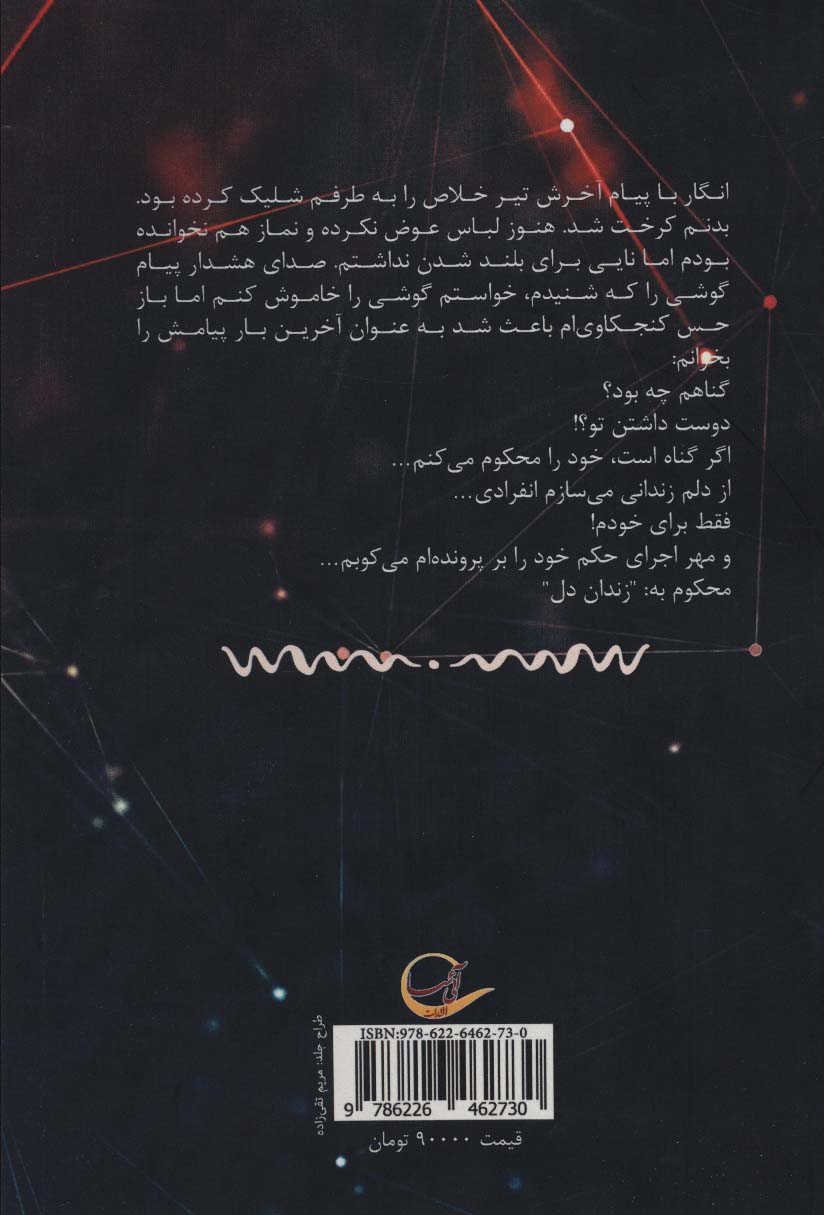 انگار با پیام آخرش تیر خلاص را به طرفم شلیک کرده بود.
بدنم کرخت شد. هنوز لباس عوض نکرده و نماز هم نخوانده
بودم اما نایی برای بلند شدن نداشتم. صدای هشدار پیام
گوشی را که شنیدم، خواستم گوشی را خاموش کنم اما باز
حس کنجکاوی‌ام باعث شد به عنوان آخرین بار پیامش را
بخوانم:
گناهم چه بود؟
دوست داشتن تو؟!
اگر گناه است، خود را محکوم می‌کنم...
از دلم زندانی می‌سازم انفرادی...
فقط برای خودم!
و مهر اجرای حکم خود را بر پرونده‌ام می‌کوبم...
محکوم به: "زندان دل"
انتشارات
طراح جلد: مریم تقی‌زاده
ISBN:978-622-6462-73-0
9 786226 462730
قیمت ۹۰۰۰۰ تومان